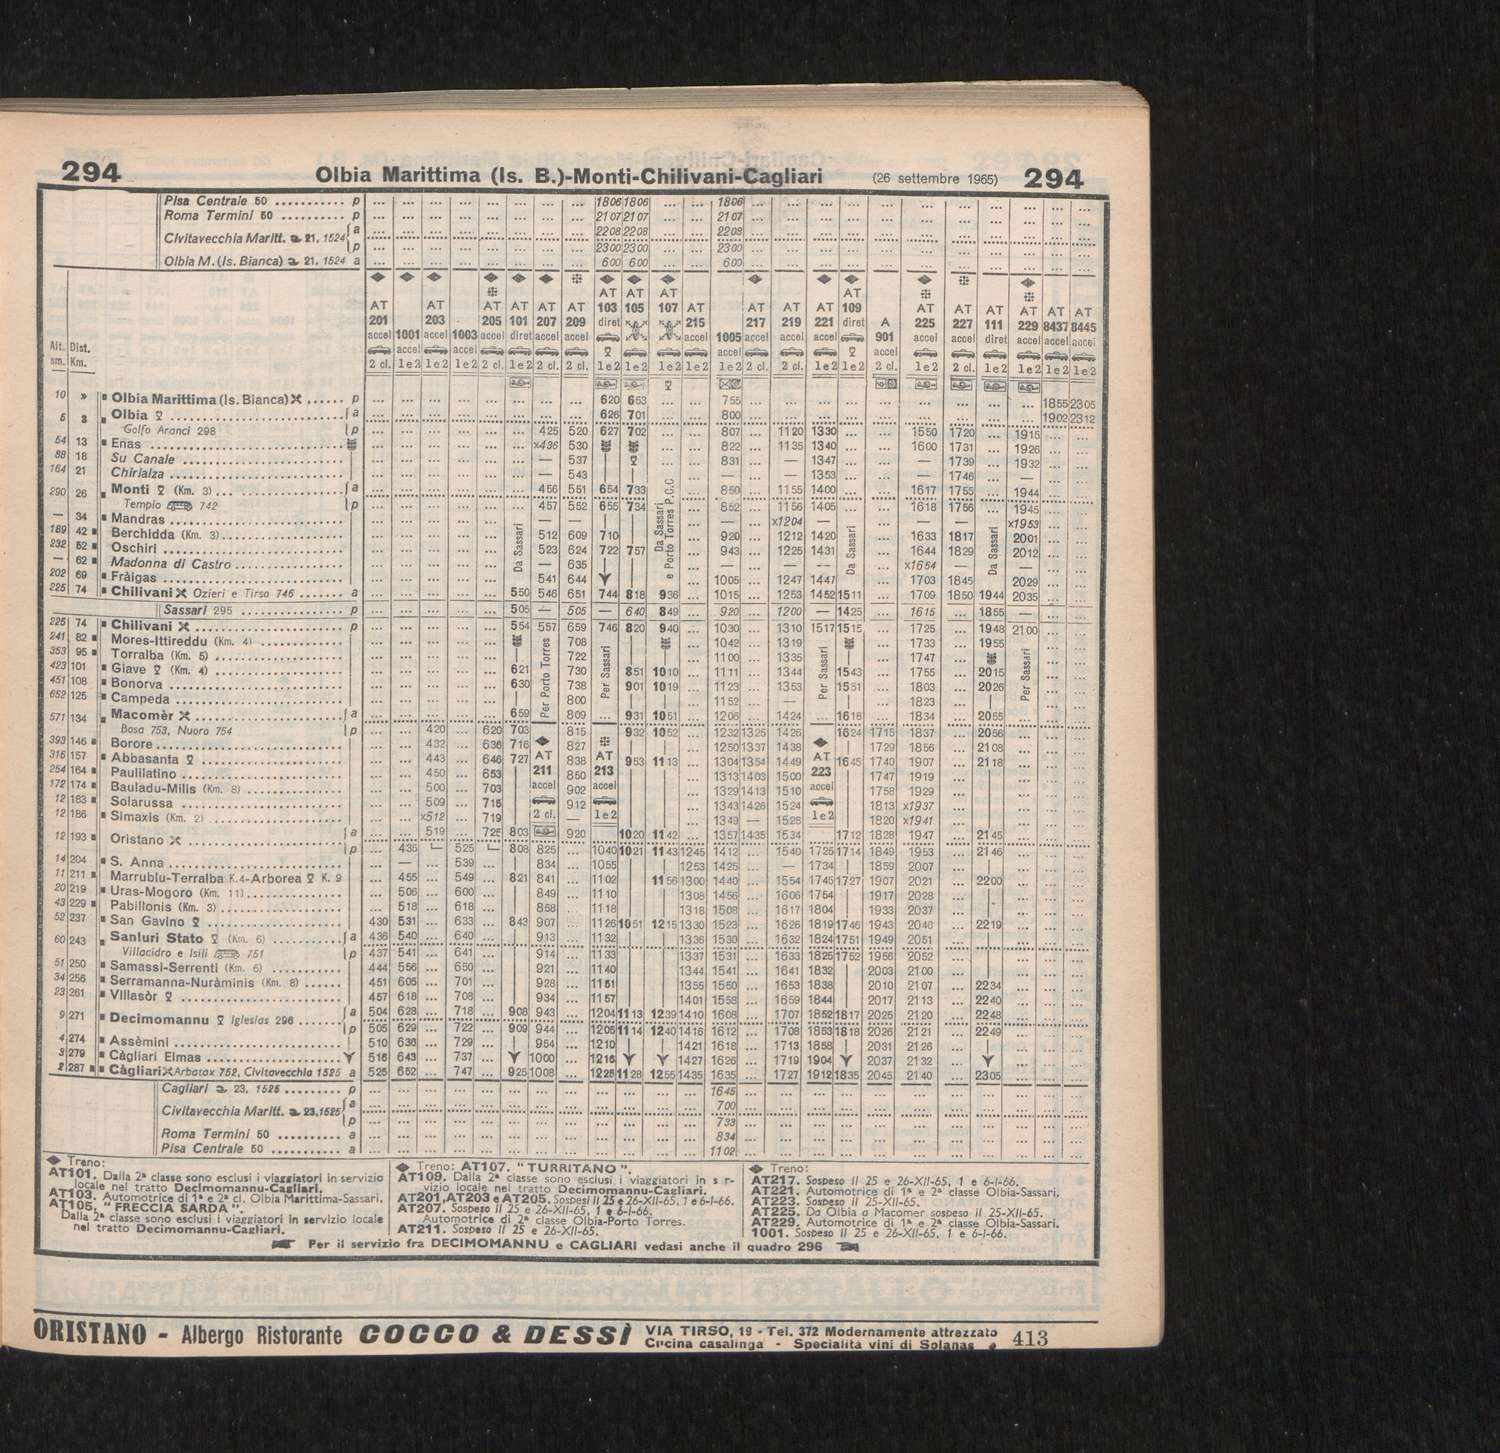 294 Olbia Marittima (Is. B.)-Monti-Chilivani-Cagliari (26 settembre 1965) 294
Pisa Centrale 50 .......... p ... ... ... ... ... ... ... ... 1806 1806 ... ... 1806 ... ... ... ... ... ... ... ... ... ... ...
Roma Termini 50 .......... p ... ... ... ... ... ... ... ... 2107 2107 ... ... 2107 ... ... ... ... ... ... ... ... ... ... ...
Civitavecchia Maritt. 21, 1524 a ... 2208 2208 ... ... 2208 ...
p ... 2300 2300 ... ... 2300 ...
Olbia M. (Is. Bianca) 21, 1524 a ... 600 600 ... ... 600 ...
AT 201 accel 2 cl.
1001 accel 1e2
AT 203 accel 1e2
1003 accel 1e2
AT 205 accel 2 cl.
AT 101 diret 1e2
AT 207 accel 2 cl.
AT 209 accel 2 cl.
AT 103 diret 1e2
AT 105 1e2
AT 107 1e2
AT 215 accel 1e2
1005 accel 1e2
AT 217 accel 2 cl.
AT 219 accel 2 cl.
AT 221 accel 1e2
AT 109 diret 1e2
A 901 accel 2 cl.
AT 225 accel 1e2
AT 227 accel 2 cl.
AT 111 diret 1e2
AT 229 accel 1e2
AT 8437 accel 1e2
AT 8445 accel 1e2
Alt. sm. Dist. Km.
10 » Olbia Marittima (Is. Bianca) ...... p 620 653 755 1855 2305
5 3 Olbia a 626 701 800 1902 2312
Golfo Aranci 298 p 425 520 627 702 807 1120 1330 1550 1720 1915
54 13 Enas x436 530 822 1135 1340 1600 1731 1926
88 18 Su Canale — 537 831 — 1347 — 1739 1932
164 21 Chirialza — 543 — — 1353 — 1746 —
290 26 Monti (Km. 3) a 456 551 654 733 850 1155 1400 1617 1755 1944
Tempio 742 p 457 552 655 734 852 1156 1405 1618 1756 1945
— 34 Mandras — — — — x1204 — — — x1953
189 42 Berchidda (Km. 3) 512 609 710 920 1212 1420 1633 1817 2001
232 52 Oschiri 523 624 722 757 943 1225 1431 1644 1829 2012
— 62 Madonna di Castro — 635 — — — x1654 — —
202 69 Fràigas 541 644 1005 1247 1447 1703 1845 2029
225 74 Chilivani Ozieri e Tirso 746 a 550 546 651 744 818 936 1015 1253 1452 1511 1709 1850 1944 2035
Sassari 295 p 505 — 505 — 640 849 920 1200 — 1425 1615 1855 —
225 74 Chilivani p 554 557 659 746 820 940 1030 1310 1517 1515 1725 1948 2100
241 82 Mores-Ittireddu (Km. 4) 708 1042 1319 1733 1955
353 95 Torralba (Km. 5) 722 1100 1335 1747
423 101 Giave (Km. 4) 621 730 851 1010 1111 1344 1543 1755 2015
451 108 Bonorva 630 738 901 1019 1123 1353 1551 1803 2026
652 125 Campeda 800 1152 — 1823
571 134 Macomèr a 659 809 931 1051 1206 1424 1618 1834 2055
Bosa 753, Nuoro 754 p 420 620 703 815 932 1052 1232 1325 1426 1624 1715 1837 2056
393 146 Borore 432 636 716 827 1250 1337 1438 1729 1856 2108
316 157 Abbasanta 443 646 727 838 953 1113 1304 1354 1449 1645 1740 1907 2118
254 164 Paulilatino 450 653 850 1313 1403 1500 1747 1919
172 174 Bauladu-Milis (Km. 8) 500 703 902 1329 1413 1510 1758 1929
12 183 Solarussa 509 715 912 1343 1426 1524 1813 x1937
12 186 Simaxis (Km. 2) x512 719 1349 — 1528 1820 x1941
12 193 Oristano a 519 725 803 920 1020 1142 1357 1435 1534 1712 1828 1947 2145
p 435 525 808 825 1040 1021 1143 1245 1412 1540 1725 1714 1849 1953 2146
14 204 S. Anna — 539 834 1055 1253 1425 — 1734 1859 2007
11 211 Marrublu-Terralba K.4-Arborea K. 9 455 549 821 841 1102 1156 1300 1440 1554 1745 1727 1907 2021 2200
20 219 Uras-Mogoro (Km. 11) 506 600 849 1110 1308 1456 1606 1754 1917 2028
43 229 Pabillonis (Km. 3) 518 618 858 1118 1318 1508 1617 1804 1933 2037
52 237 San Gavino 430 531 633 843 907 1126 1051 1215 1330 1523 1626 1819 1746 1943 2046 2219
60 243 Sanluri Stato (Km. 6) a 436 540 640 913 1132 1336 1530 1632 1824 1751 1949 2051
Villacidro e Isili 751 p 437 541 641 914 1133 1337 1531 1633 1825 1752 1956 2052
51 250 Samassi-Serrenti (Km. 6) 444 556 650 921 1140 1344 1541 1641 1832 2003 2100
34 256 Serramanna-Nuràminis (Km. 8) 451 605 701 928 1151 1355 1550 1653 1838 2010 2107 2234
23 261 Villasòr 457 618 708 934 1157 1401 1558 1659 1844 2017 2113 2240
9 271 Decimomannu Iglesias 296 a 504 628 718 908 943 1204 1113 1239 1410 1608 1707 1852 1817 2025 2120 2248
p 505 629 722 909 944 1205 1114 1240 1416 1612 1708 1853 1818 2026 2121 2249
4 274 Assèmini 510 636 729 954 1210 1421 1618 1713 1858 2031 2126
3 279 Càgliari Elmas 516 643 737 1000 1216 1427 1626 1719 1904 2037 2132
2 287 Càgliari Arbatax 752, Civitavecchia 1525 a 525 652 747 925 1008 1225 1128 1255 1435 1635 1727 1912 1835 2045 2140 2305
Da Sassari
Per Porto Torres
Per Sassari
Da Sassari e Porto Torres P.C.C
Per Sassari
Da Sassari
Da Sassari
Per Sassari
AT 211 accel 2 cl.
AT 213 accel 1e2
AT 223 accel 1e2
Cagliari 23, 1525 ........ p 1645
Civitavecchia Maritt. 23, 1525 a 700
p 733
Roma Termini 50 .......... a 834
Pisa Centrale 50 .......... a 1102
Treno:
AT101. Dalla 2ª classe sono esclusi i viaggiatori in servizio
locale nel tratto Decimomannu-Cagliari.
AT103. Automotrice di 1ª e 2ª cl. Olbia Marittima-Sassari.
AT105, " FRECCIA SARDA ".
Dalla 2ª classe sono esclusi i viaggiatori in servizio locale
nel tratto Decimomannu-Cagliari.
Treno: AT107. " TURRITANO ".
AT109. Dalla 2ª classe sono esclusi i viaggiatori in s r-
vizio locale nel tratto Decimomannu-Cagliari.
AT201, AT203 e AT205. Sospesi il 25 e 26-XII-65, 1 e 6-I-66.
AT207. Sospeso il 25 e 26-XII-65, 1 e 6-I-66.
Automotrice di 2ª classe Olbia-Porto Torres.
AT211. Sospeso il 25 e 26-XII-65.
Treno:
AT217. Sospeso il 25 e 26-XII-65, 1 e 6-I-66.
AT221. Automotrice di 1ª e 2ª classe Olbia-Sassari.
AT223. Sospeso il 25-XII-65.
AT225. Da Olbia a Macomer sospeso il 25-XII-65.
AT229. Automotrice di 1ª e 2ª classe Olbia-Sassari.
1001. Sospeso il 25 e 26-XII-65, 1 e 6-I-66.
Per il servizio fra DECIMOMANNU e CAGLIARI vedasi anche il quadro 296
ORISTANO - Albergo Ristorante COCCO & DESSÌ VIA TIRSO, 19 - Tel. 372 Modernamente attrezzato
Cucina casalinga - Specialità vini di Solanas 413